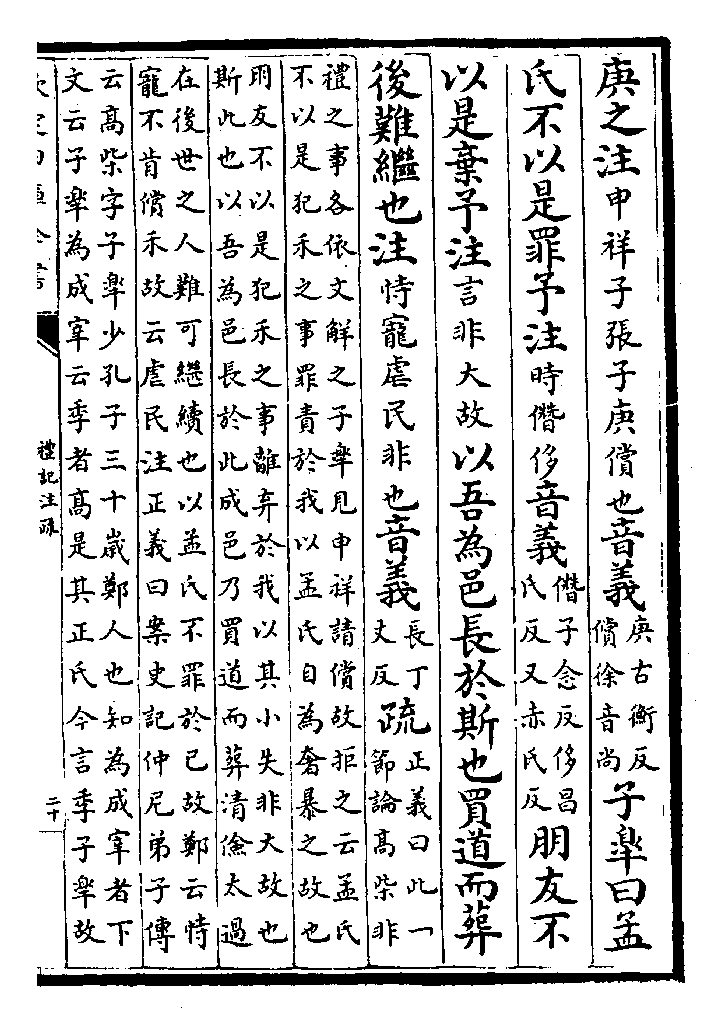 庚之注申祥子張子庚償也音義庚古衡反償徐音尚子臯曰孟
氏不以是罪予注時僭侈音義僭子念反侈昌氏反又赤氏反朋友不
以是棄予注言非大故以吾為邑長於斯也買道而葬
後難繼也注恃寵虐民非也音義長丁丈反疏正義曰此一節論高柴非
禮之事各依文解之子臯見申祥請償故拒之云孟氏
不以是犯禾之事罪責於我以孟氏自為奢暴之故也
朋友不以是犯禾之事離弃於我以其小失非大故也
斯此也以吾為邑長於此成邑乃買道而葬清儉太過
在後世之人難可繼續也以孟氏不罪於已故鄭云恃
寵不肯償禾故云虐民注正義曰案史記仲尼弟子傳
云高柴字子臯少孔子三十歲鄭人也知為成宰者下
文云子臯為成宰云季者高是其正氏今言季子臯故
禮記注疏
二十